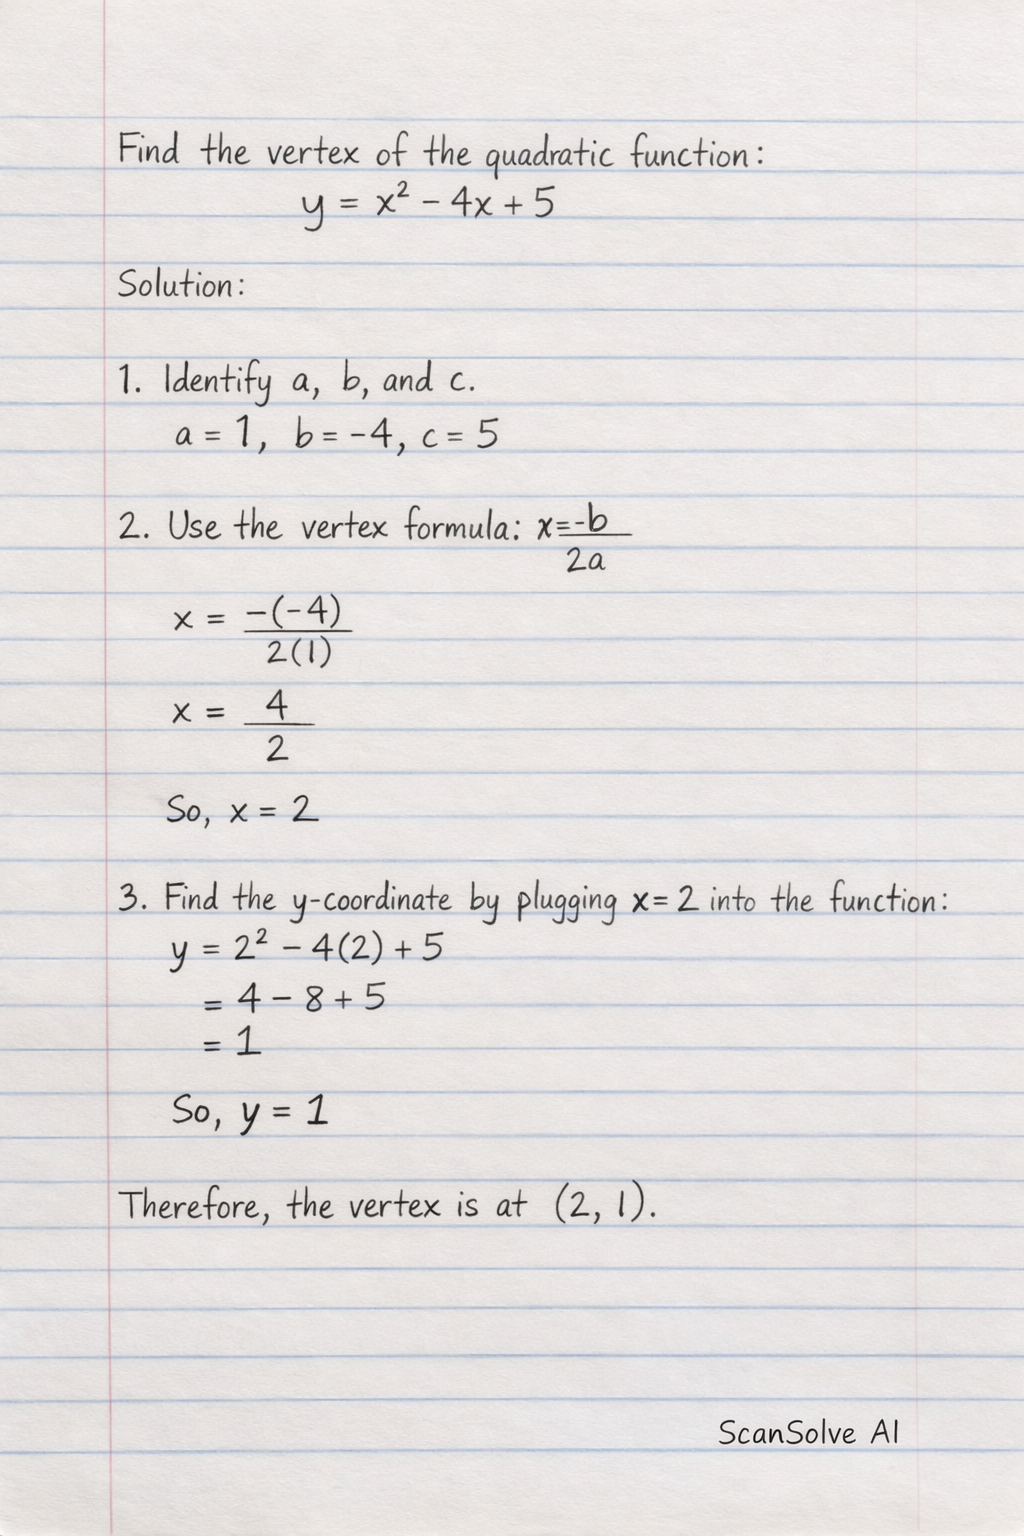 Find the vertex of the quadratic function:
y = x² - 4x + 5
Solution:
1. Identify a, b, and c.
a = 1, b = -4, c = 5
2. Use the vertex formula: x = -b
2a
x = -(-4)
2(1)
x = 4
2
So, x = 2
3. Find the y-coordinate by plugging x = 2 into the function:
y = 2² - 4(2) + 5
= 4 - 8 + 5
= 1
So, y = 1
Therefore, the vertex is at (2, 1).
ScanSolve AI